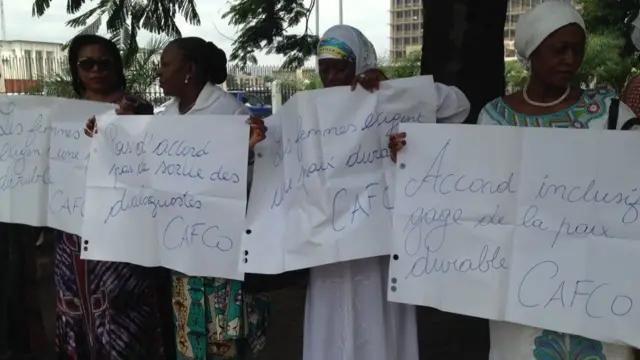 les femmes
exigent une
durable
CAFCO
Pas d'accord
pas de sortie des
dialoguistes
CAFCO
Les femmes exigent
une paix durable
CAFCO
Accord inclusif
gage de la paix
durable
CAFCO